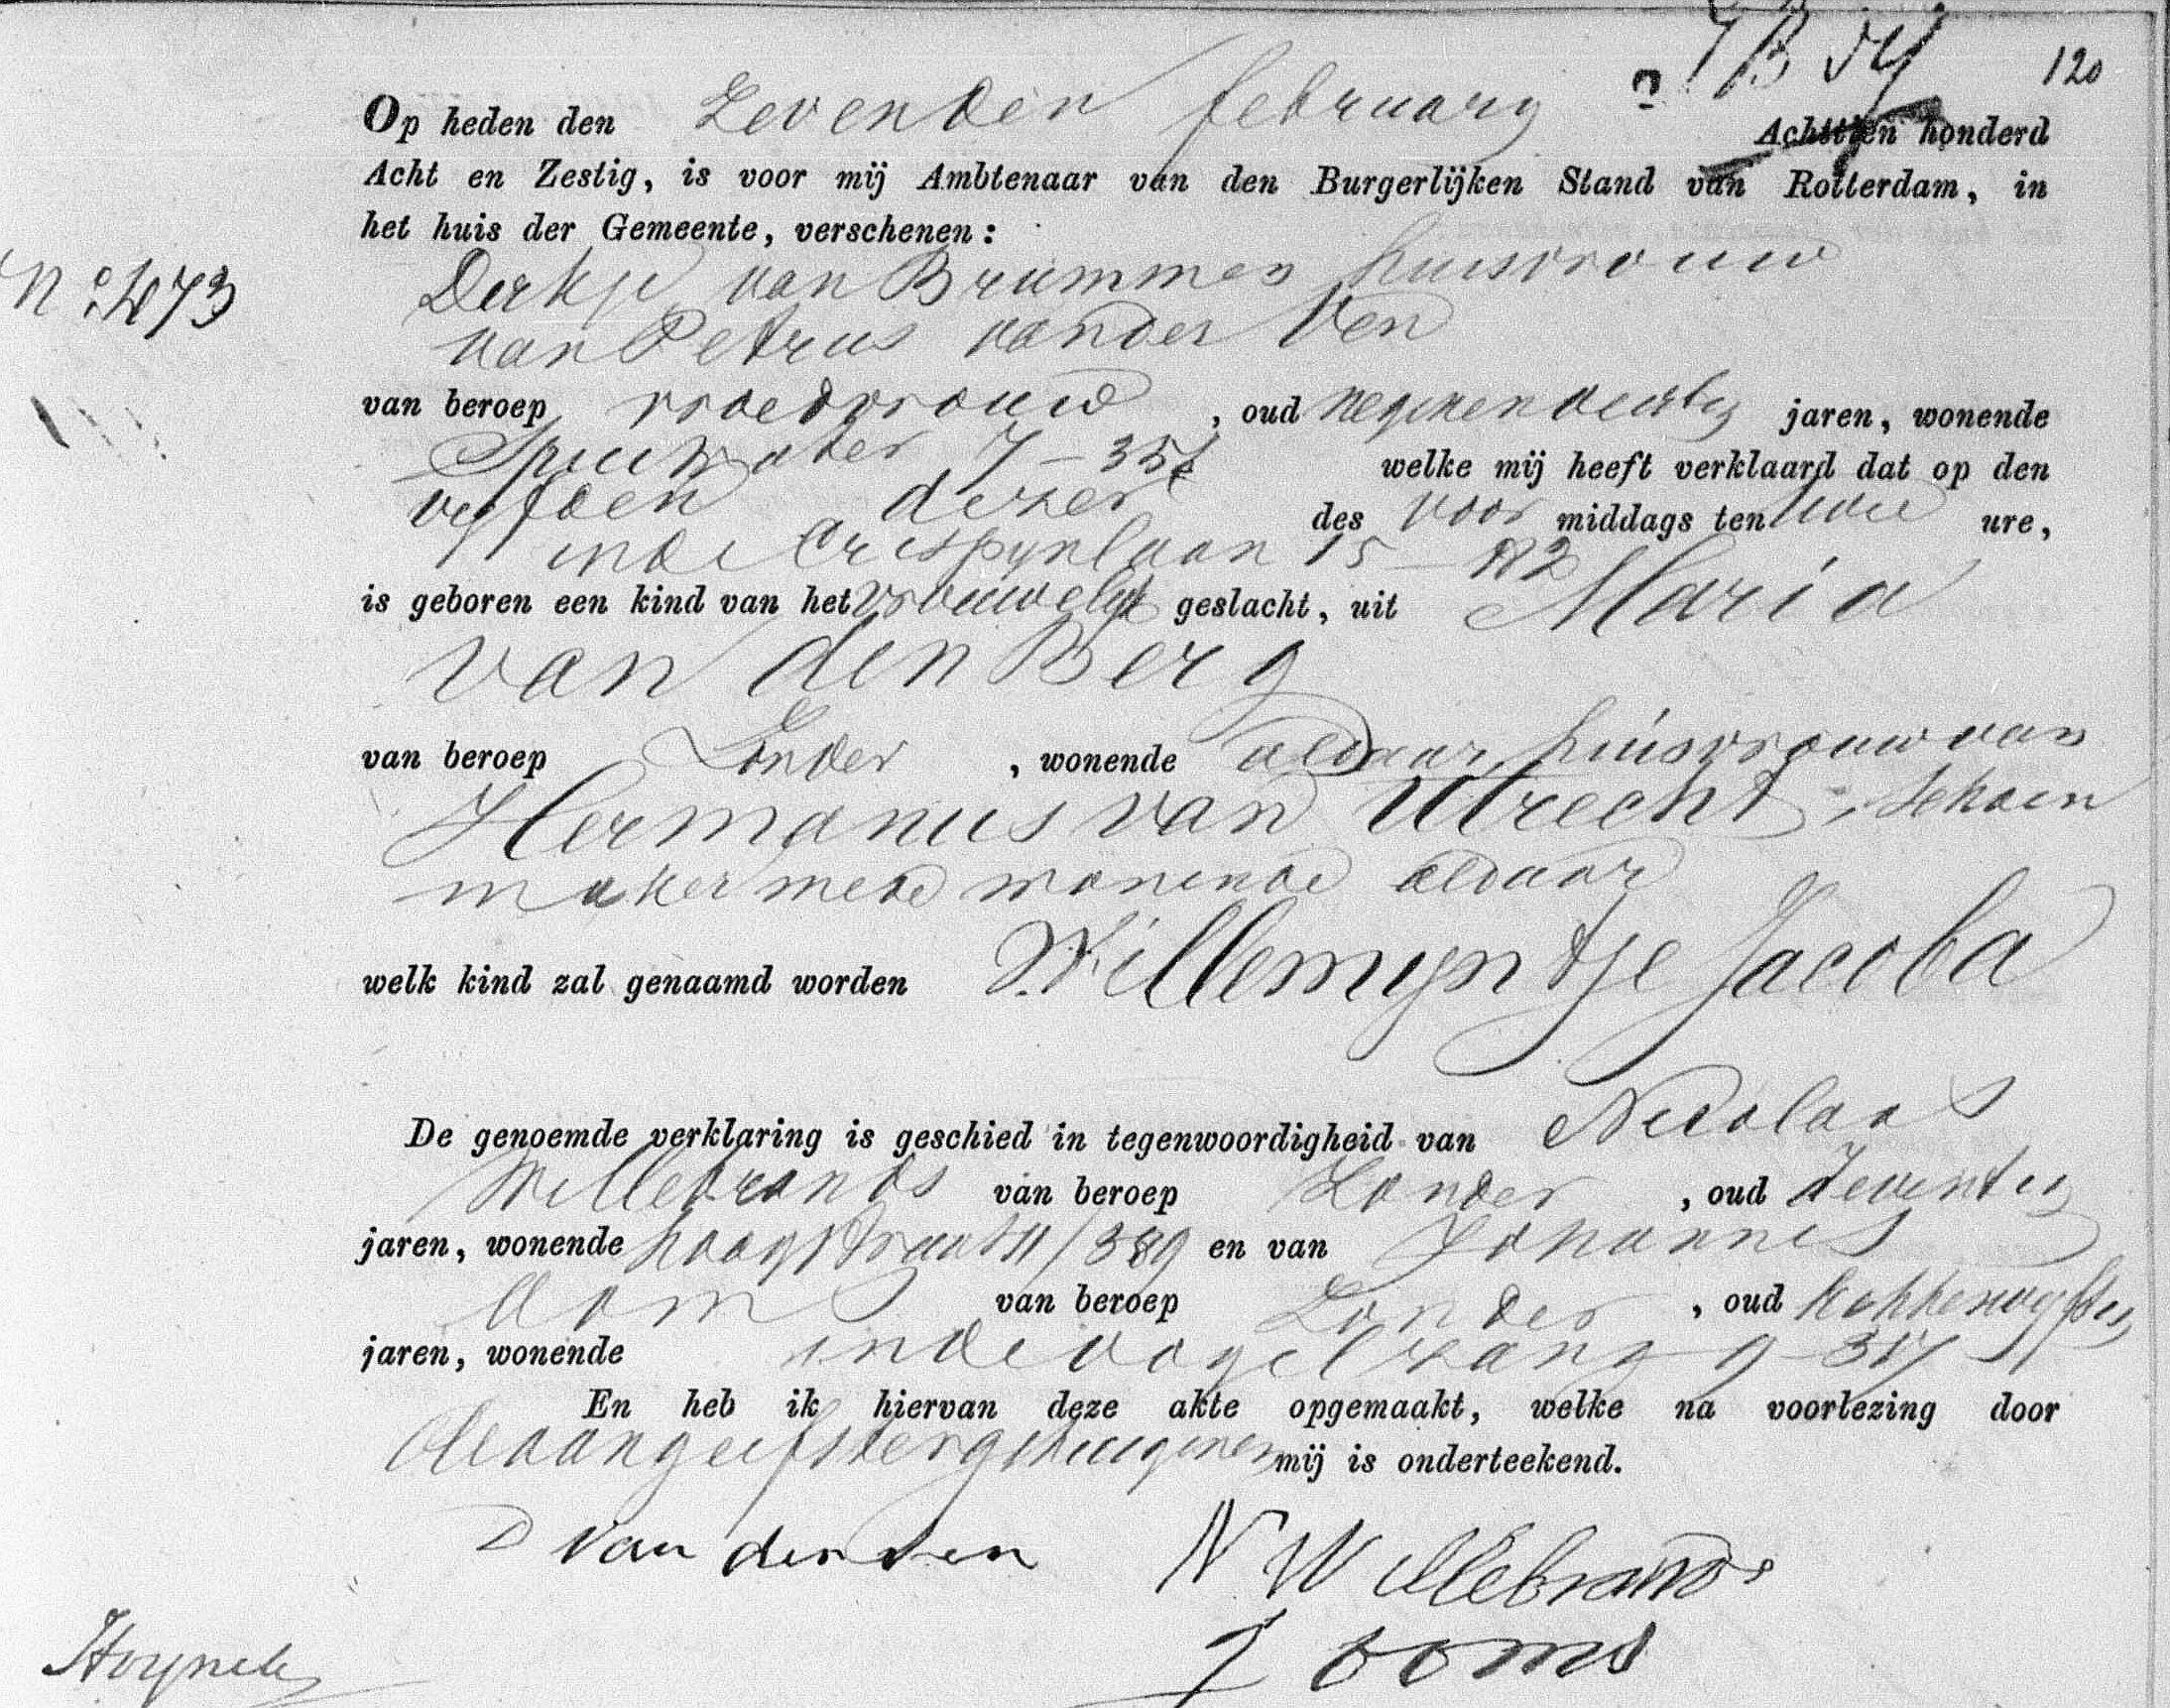 120
Op heden den Zevenden february Achttien honderd
Acht en Zestig, is voor mij Ambtenaar van den Burgerlijken Stand van Rotterdam, in
het huis der Gemeente, verschenen:
No 473
Derkje van Brummen huisvrouw
van Petrus vander Ven
van beroep vroedvrouw, oud negenendertig jaren, wonende
Spuiwater 7-35 welke mij heeft verklaard dat op den
vyfden dezer des voor middags ten twee ure,
inde Crispynlaan 15 - 82
is geboren een kind van het vrouwelyk geslacht, uit Maria
van den Berg
van beroep Zonder, wonende aldaar huisvrouw van
Hermanus van Utrecht, schoen
maker mede wonende aldaar
welk kind zal genaamd worden Willemyntje Jacoba
De genoemde verklaring is geschied in tegenwoordigheid van Nicolaas
Willebrands van beroep Zonder, oud Zeventig
jaren, wonende hoogstraat 11/389 en van Johannes
Ooms van beroep Zonder, oud
jaren, wonende inde vogelzang 9-317
En heb ik hiervan deze akte opgemaakt, welke na voorlezing door
de aangeefster getuigen en mij is onderteekend.
D van der Ven N Willebrands
J Ooms